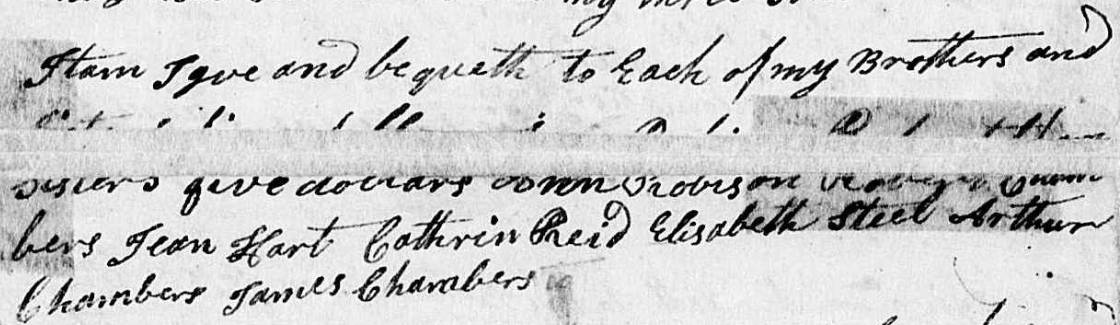 my
Itam I gve and bequeath to Each of my Brothers and
Sisters five dollars Robison Cham
bers Jean Hart Cathrin Reid Elisabeth Steel Arthur
Chambers James Chambers